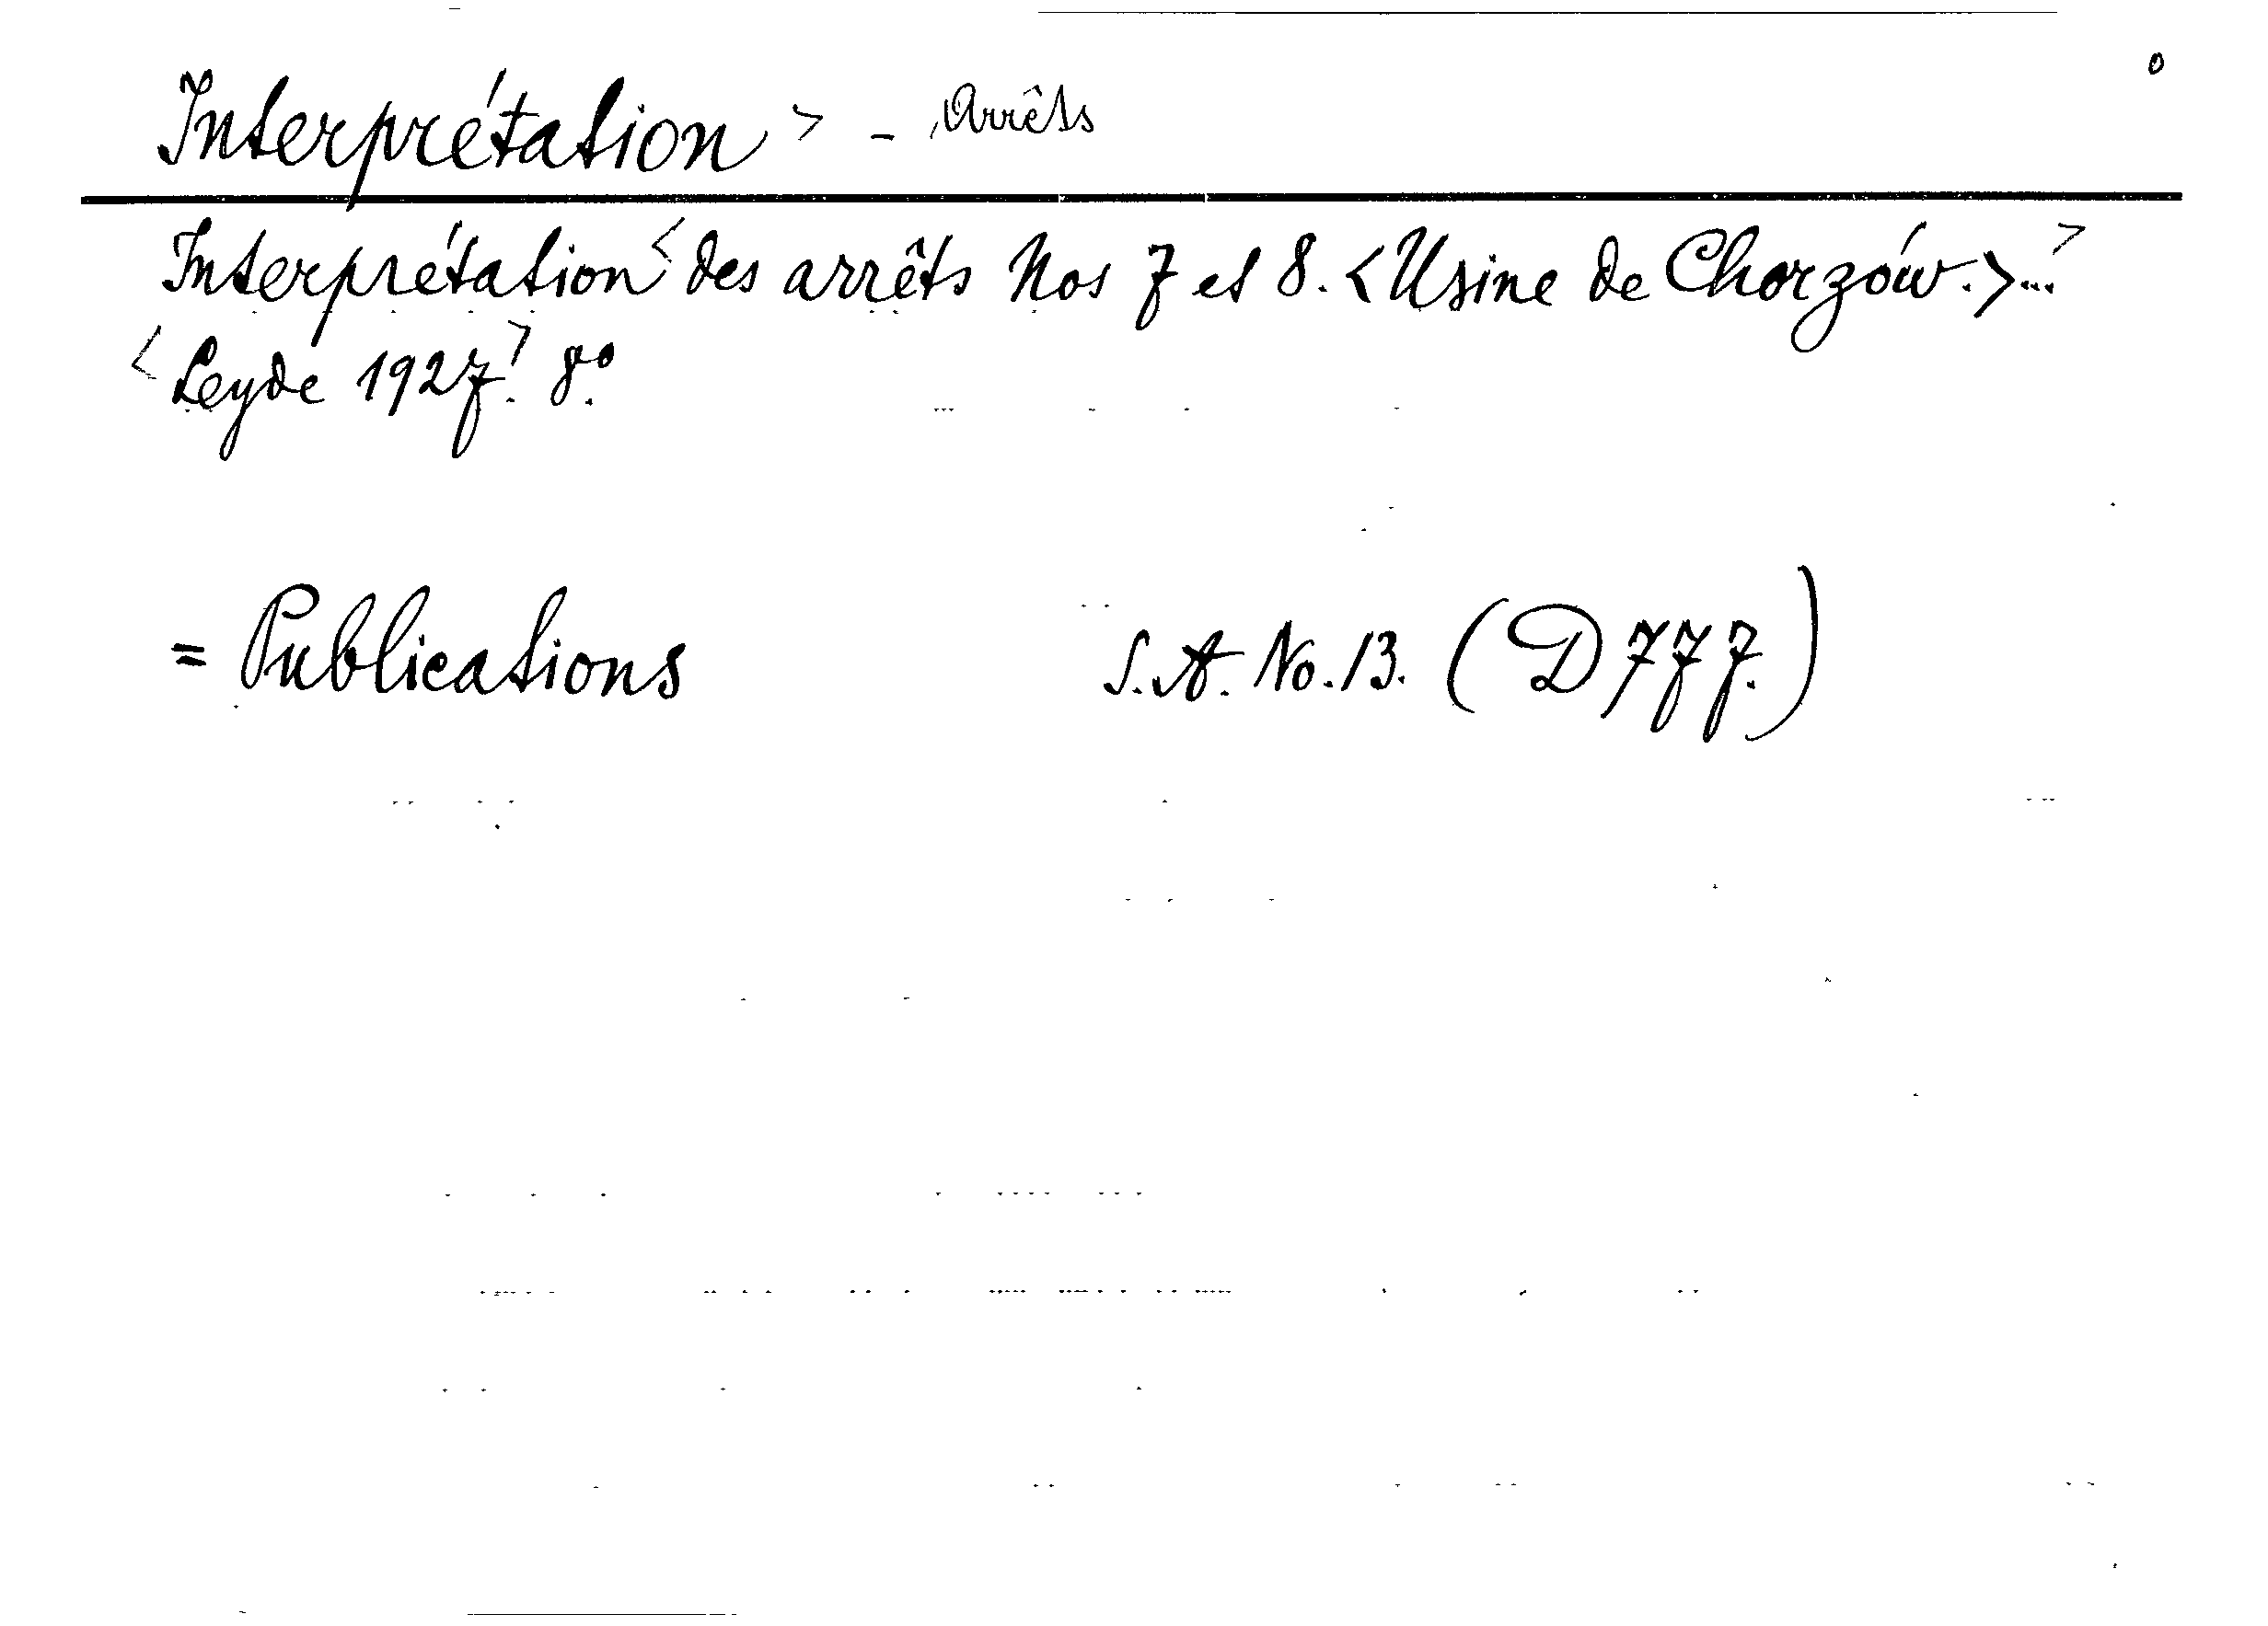 o
Interprétation > - Arrêts
Interprétation < des arrêts Nos 7 et 8. <Usine de Chorzów.>...>
<Leyde 1927.> 8°.
= Publications S.A. No.13. (D 777.)